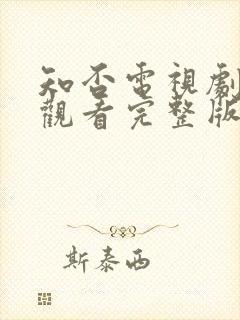 知否電視劇
觀看完整版
斯泰西